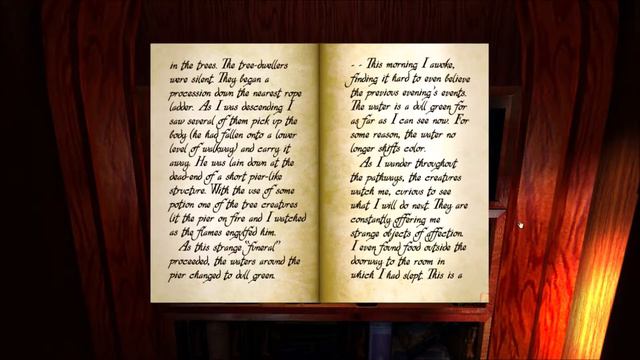 in the trees. The tree-dwellers
were silent. They began a
procession down the nearest rope
ladder. As I was descending I
saw several of them pick up the
body (he had fallen onto a lower
level of walkway) and carry it
away. He was lain down at the
dead-end of a short pier-like
structure. With the use of some
potion one of the tree creatures
lit the pier on fire and I watched
as the flames engulfed him.
As this strange "funeral"
proceeded, the waters around the
pier changed to dull green.
- - This morning I awoke,
finding it hard to even believe
the previous evening's events.
The water is a dull green for
as far as I can see now. For
some reason, the water no
longer shifts color.
As I wander throughout
the pathways, the creatures
watch me, curious to see
what I will do next. They are
constantly offering me
strange objects of affection.
I even found food outside the
doorway to the room in
which I had slept. This is a